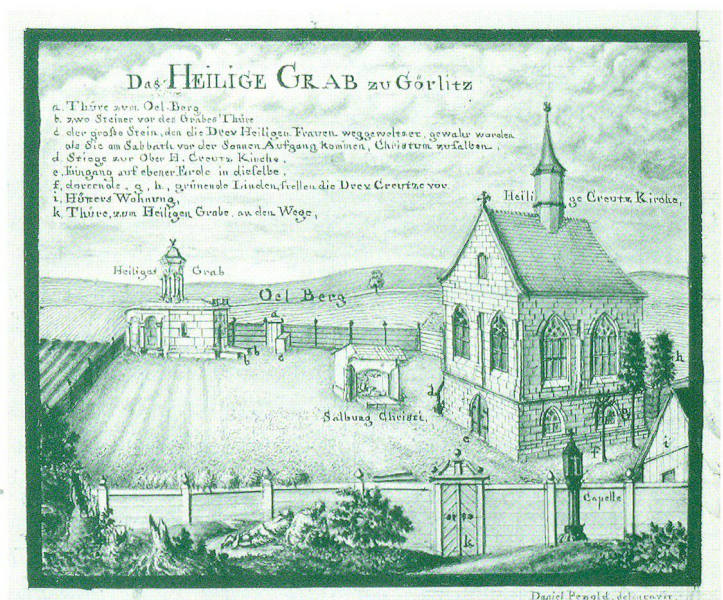 Das HEILIGE GRAB zu Görlitz
a. Thüre zum Oel-Berg
b. zwo Steiner vor des Grabes Thüre
c der große Stein, den die Drey Heiligen Frauen weggeweltzet, gewahr worden
als Sie am Sabbath vor der Sonnen Aufgang kommen, Christum zusalben.
d. Stiege zur Ober H. Creutz Kirche,
e. Eingang auf ebener Erde in dieselbe,
f, dorrende, g, h, grünende Linden, stellen die Drey Creutze vor
i, Hütters Wohnung,
k Thüre, zum Heiligen Grabe, an den Wege,
Heilige Creutz Kirche,
Heiliges Grab
Oel Berg
a
b b
c
h
Salbung Christi,
d
e
g
f
i
Capelle
k
Daniel Pezold, delineavit.